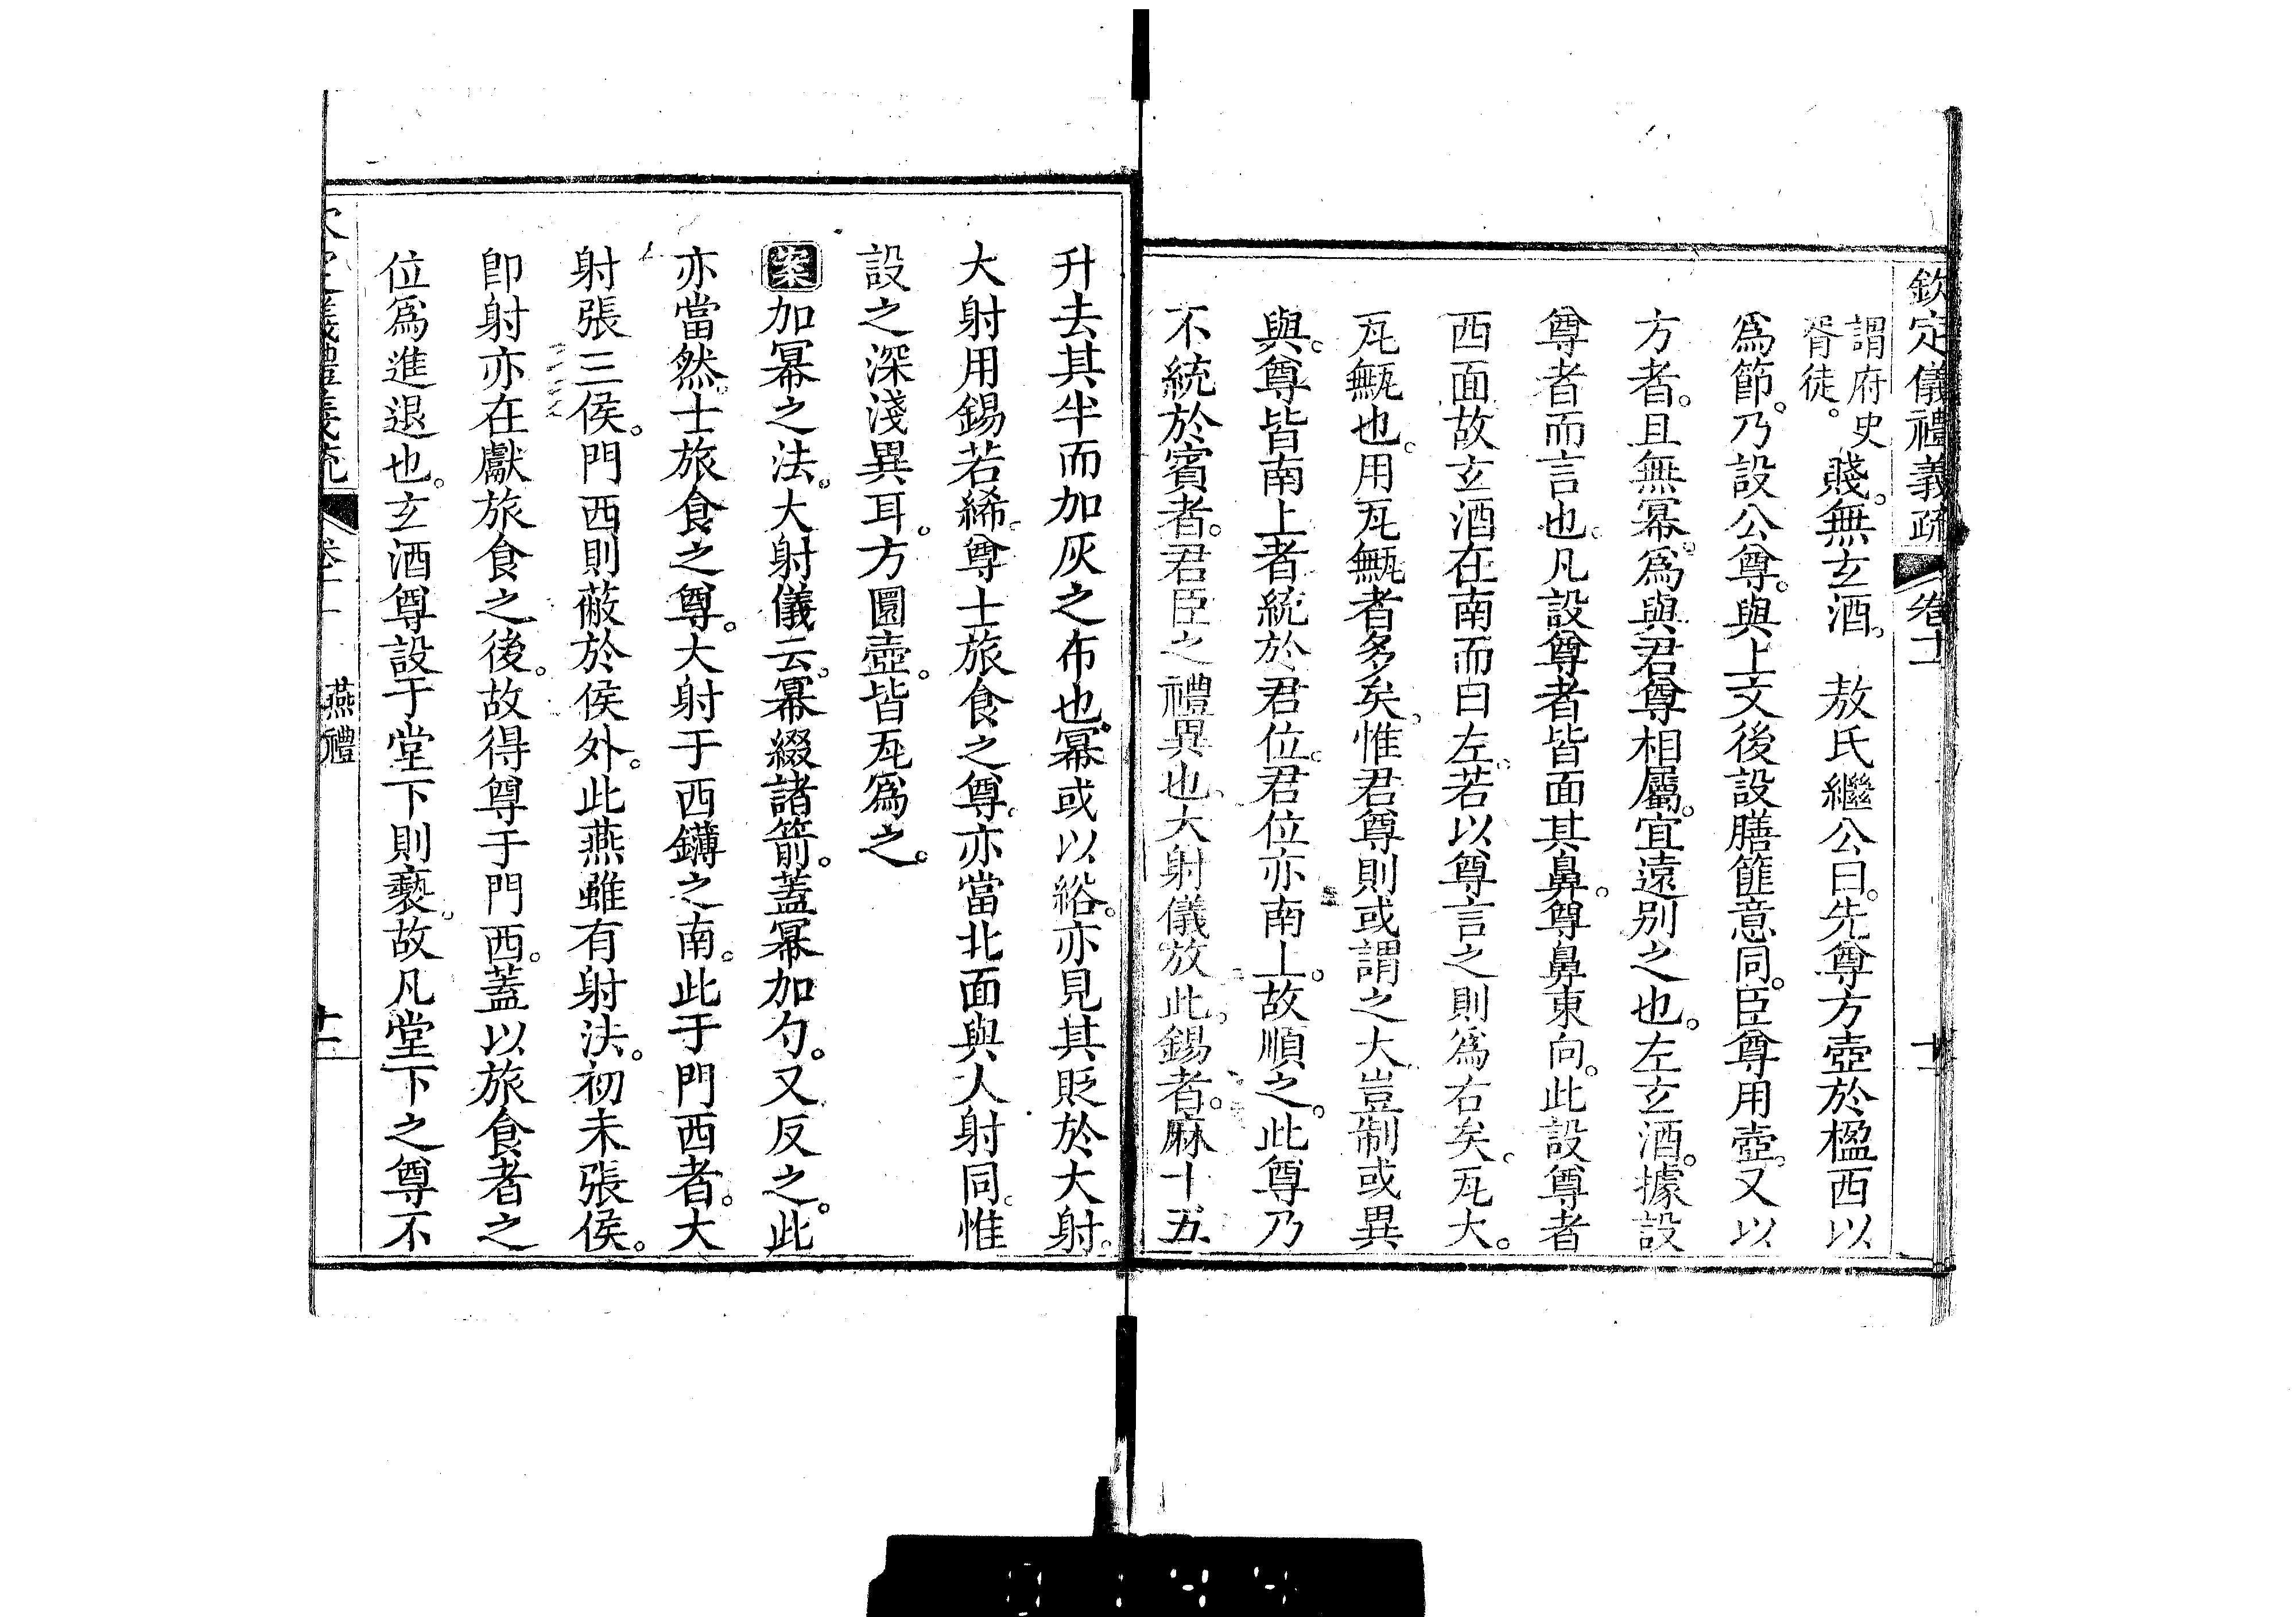 欽定儀禮義疏 卷十一
謂府史胥徒。賤。無玄酒。 敖氏繼公曰。先尊方壺於楹西以
爲節。乃設公尊。與上文後設膳篚意同。臣尊用壺。又以
方者。且無冪。爲與君尊相屬。宜遠别之也。左玄酒。據設
尊者而言也。凡設尊者皆面其鼻。尊鼻東向。此設尊者
西面故玄酒在南而曰左。若以尊言之則爲右矣。瓦大。
瓦甒也。用瓦甒者多矣。惟君尊則或謂之大豈制或異
與。尊皆南上者統於君位。君位亦南上。故順之。此尊乃
不統於賓者。君臣之禮異也。大射儀放此。錫者。麻十五
升去其半而加灰之布也。冪或以綌。亦見其貶於大射。
大射用錫若絺。尊士旅食之尊。亦當北面與人射同。惟
設之深淺異耳。方圜壺。皆瓦爲之。
案加冪之法。大射儀云。冪綴諸箭。蓋冪加勺。又反之。此
亦當然。士旅食之尊。大射于西鑮之南。此于門西者。大
射張三侯。門西則蔽於侯外。此燕雖有射法。初未張侯。
卽射亦在獻旅食之後。故得尊于門西。蓋以旅食者之
位爲進退也。玄酒尊設于堂下則褻。故凡堂下之尊不
燕禮